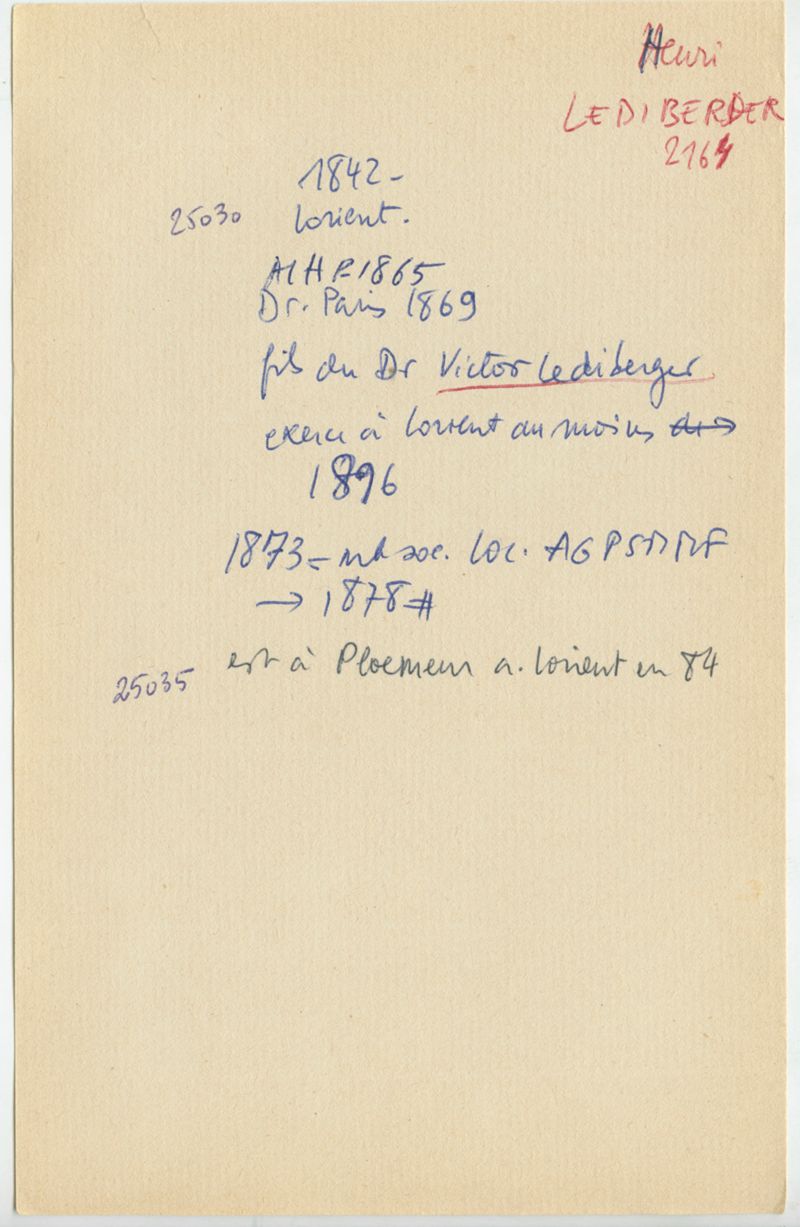 Henri
LEDIBERDER
2164
1842-
25030 Lorient.
AIHP-1865
Dr. Paris 1869
fils du Dr Victor Lediberger
exerce à Lorient au moins →
1896
1873= mb soc. loc. AGPSMMF
→ 1878 #
est à Ploemeur a. Lorient en 84
25035